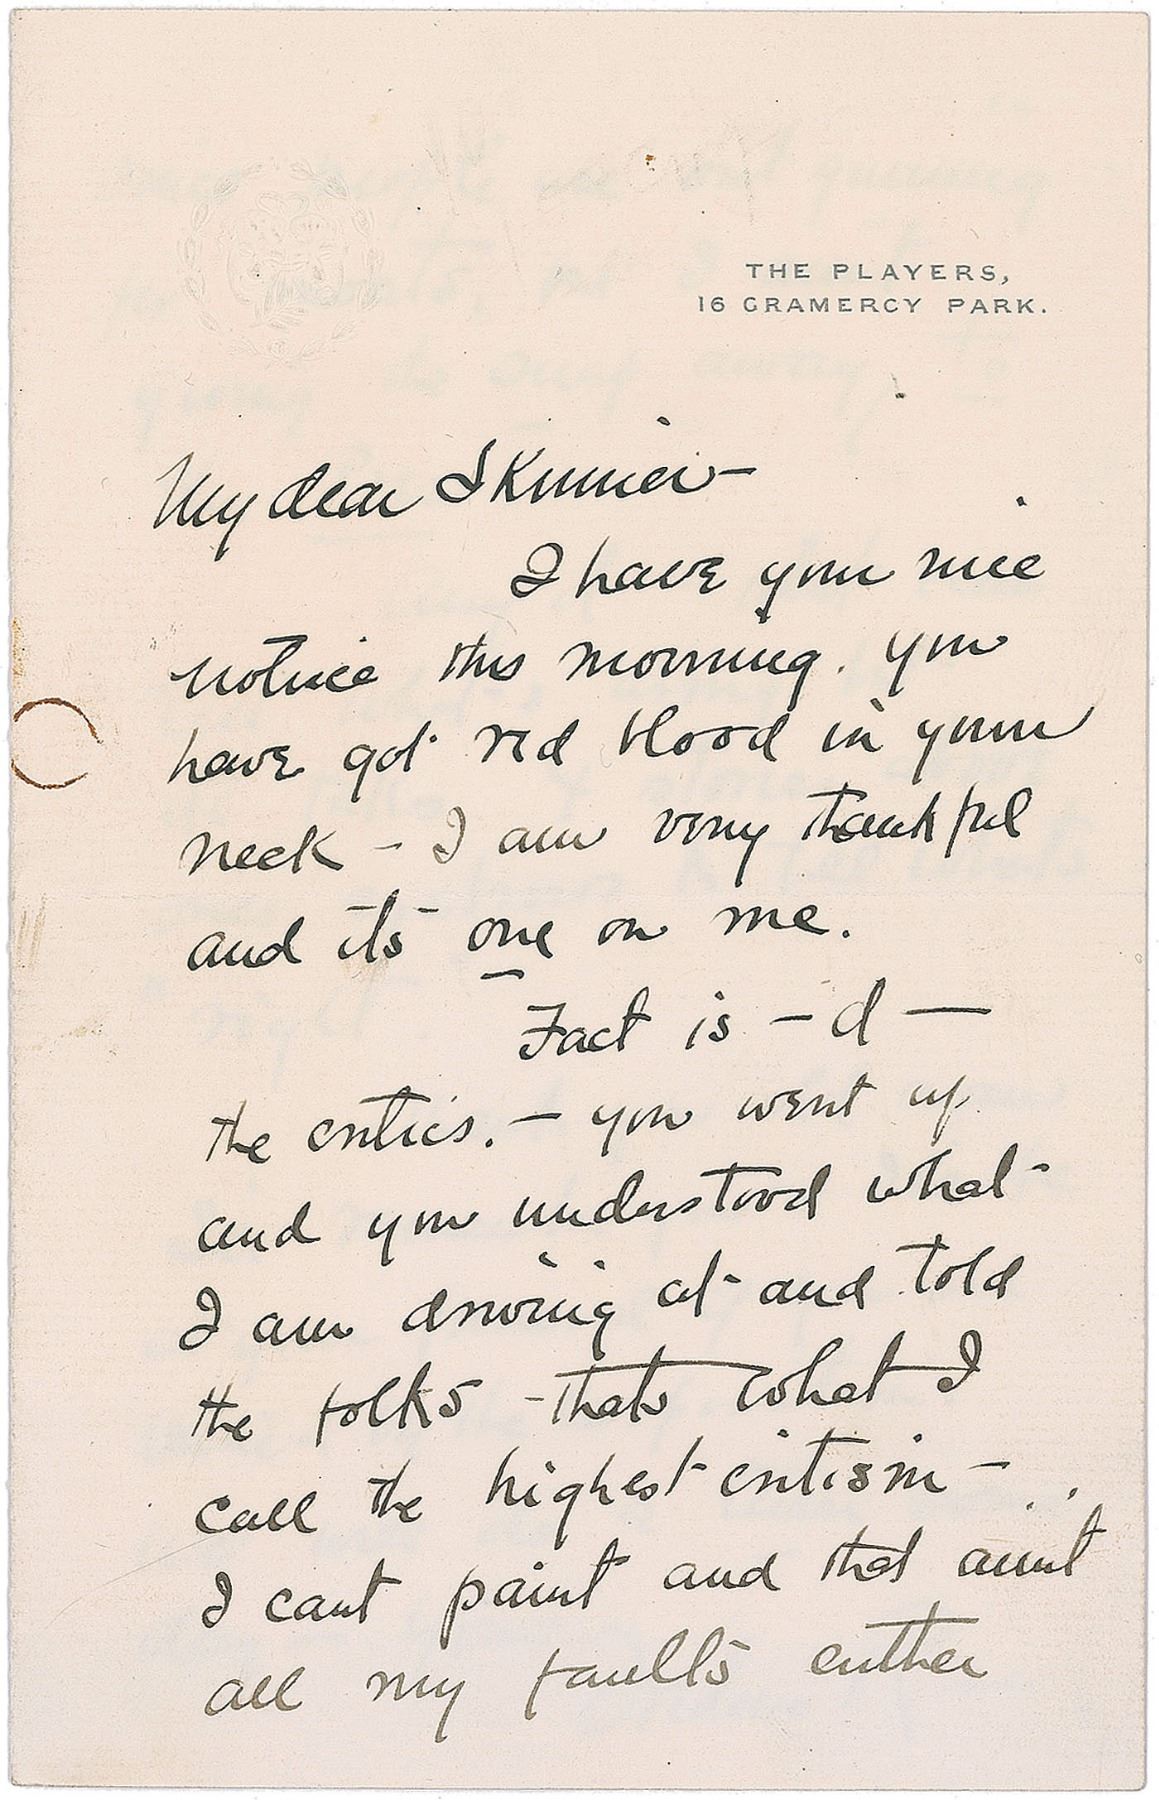 THE PLAYERS,
16 GRAMERCY PARK.
My dear Skinner—
I have your nice
notice this morning. you
have got red blood in your
neck - I am very thankful
and its one on me.
Fact is - d —
the critics. — you went up
and you understood what
I am driving at and told
the folks - thats what I
call the highest critism —
I cant paint and that aint
all my faults either